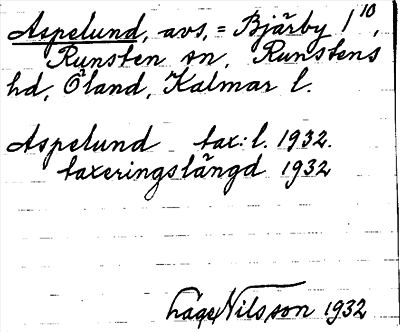 Aspelund, avs, = Bjärby 1¹⁰,
Runsten sn, Runstens
hd, Öland, Kalmar l.
Aspelund tax: l. 1932.
taxeringslängd 1932
Låge Nilsson 1932